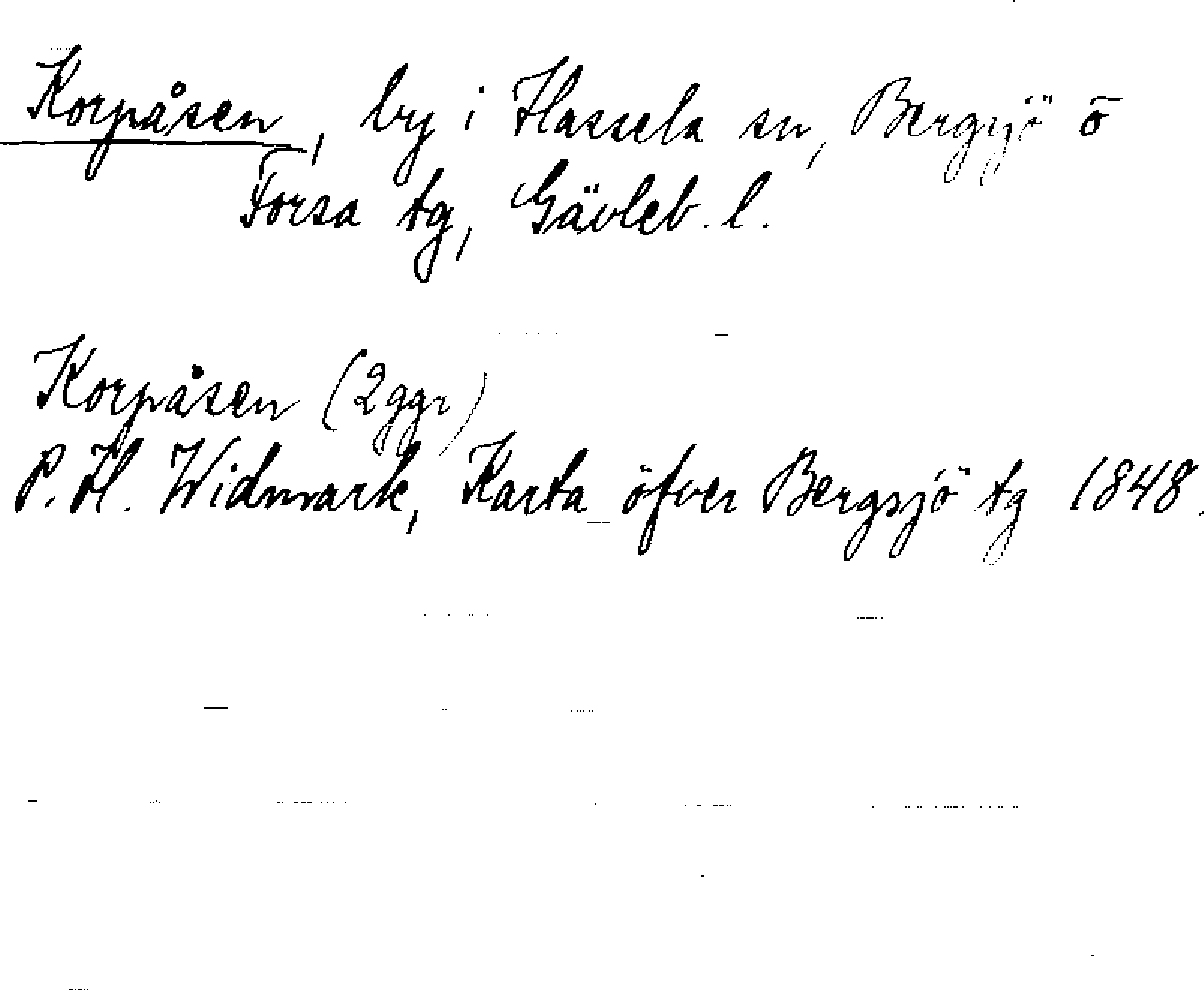 Korpåsen, by i Hassela sn, Bergsjö o
Forsa tg, Gävleb. l.
Korpåsen (2ggr)
P. H. Widmark, Karta öfver Bergsjö tg 1848.